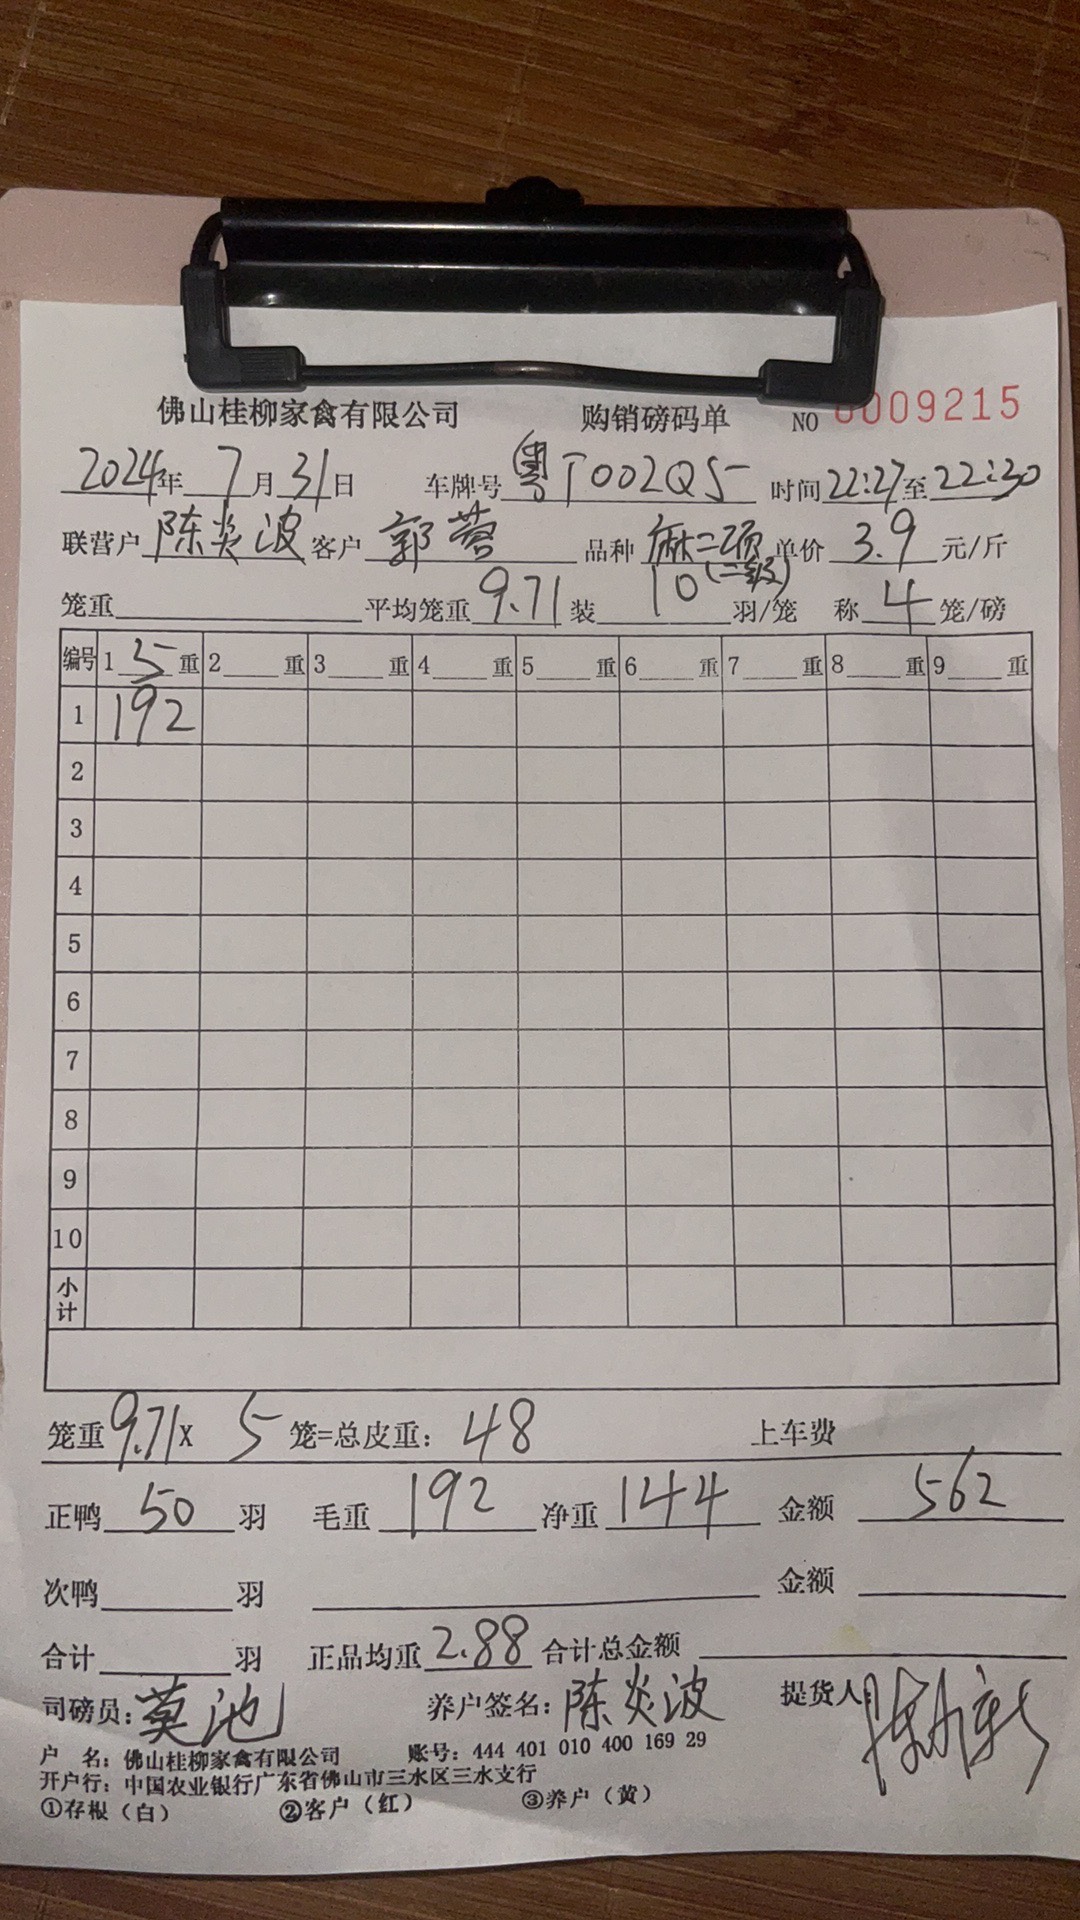 佛山桂柳家禽有限公司 购销磅码单 NO 0009215
2024年7月31日 车牌号 粤T002Q5 时间22:27至22:30
联营户 陈炎波 客户 郭蓉 品种 麻二项(二级) 单价 3.9 元/斤
笼重 平均笼重 9.71 装 10 羽/笼 称 4 笼/磅
编号 1 5 重 2 重 3 重 4 重 5 重 6 重 7 重 8 重 9 重
1 192
2
3
4
5
6
7
8
9
10
小计
笼重 9.71 X 5 笼=总皮重: 48 上车费
正鸭 50 羽 毛重 192 净重 144 金额 562
次鸭 羽 金额
合计 羽 正品均重 2.88 合计总金额
司磅员: 莫池 养户签名: 陈炎波 提货人
户 名: 佛山桂柳家禽有限公司 账号: 444 401 010 400 169 29
开户行: 中国农业银行广东省佛山市三水区三水支行
①存根（白） ②客户（红） ③养户（黄）